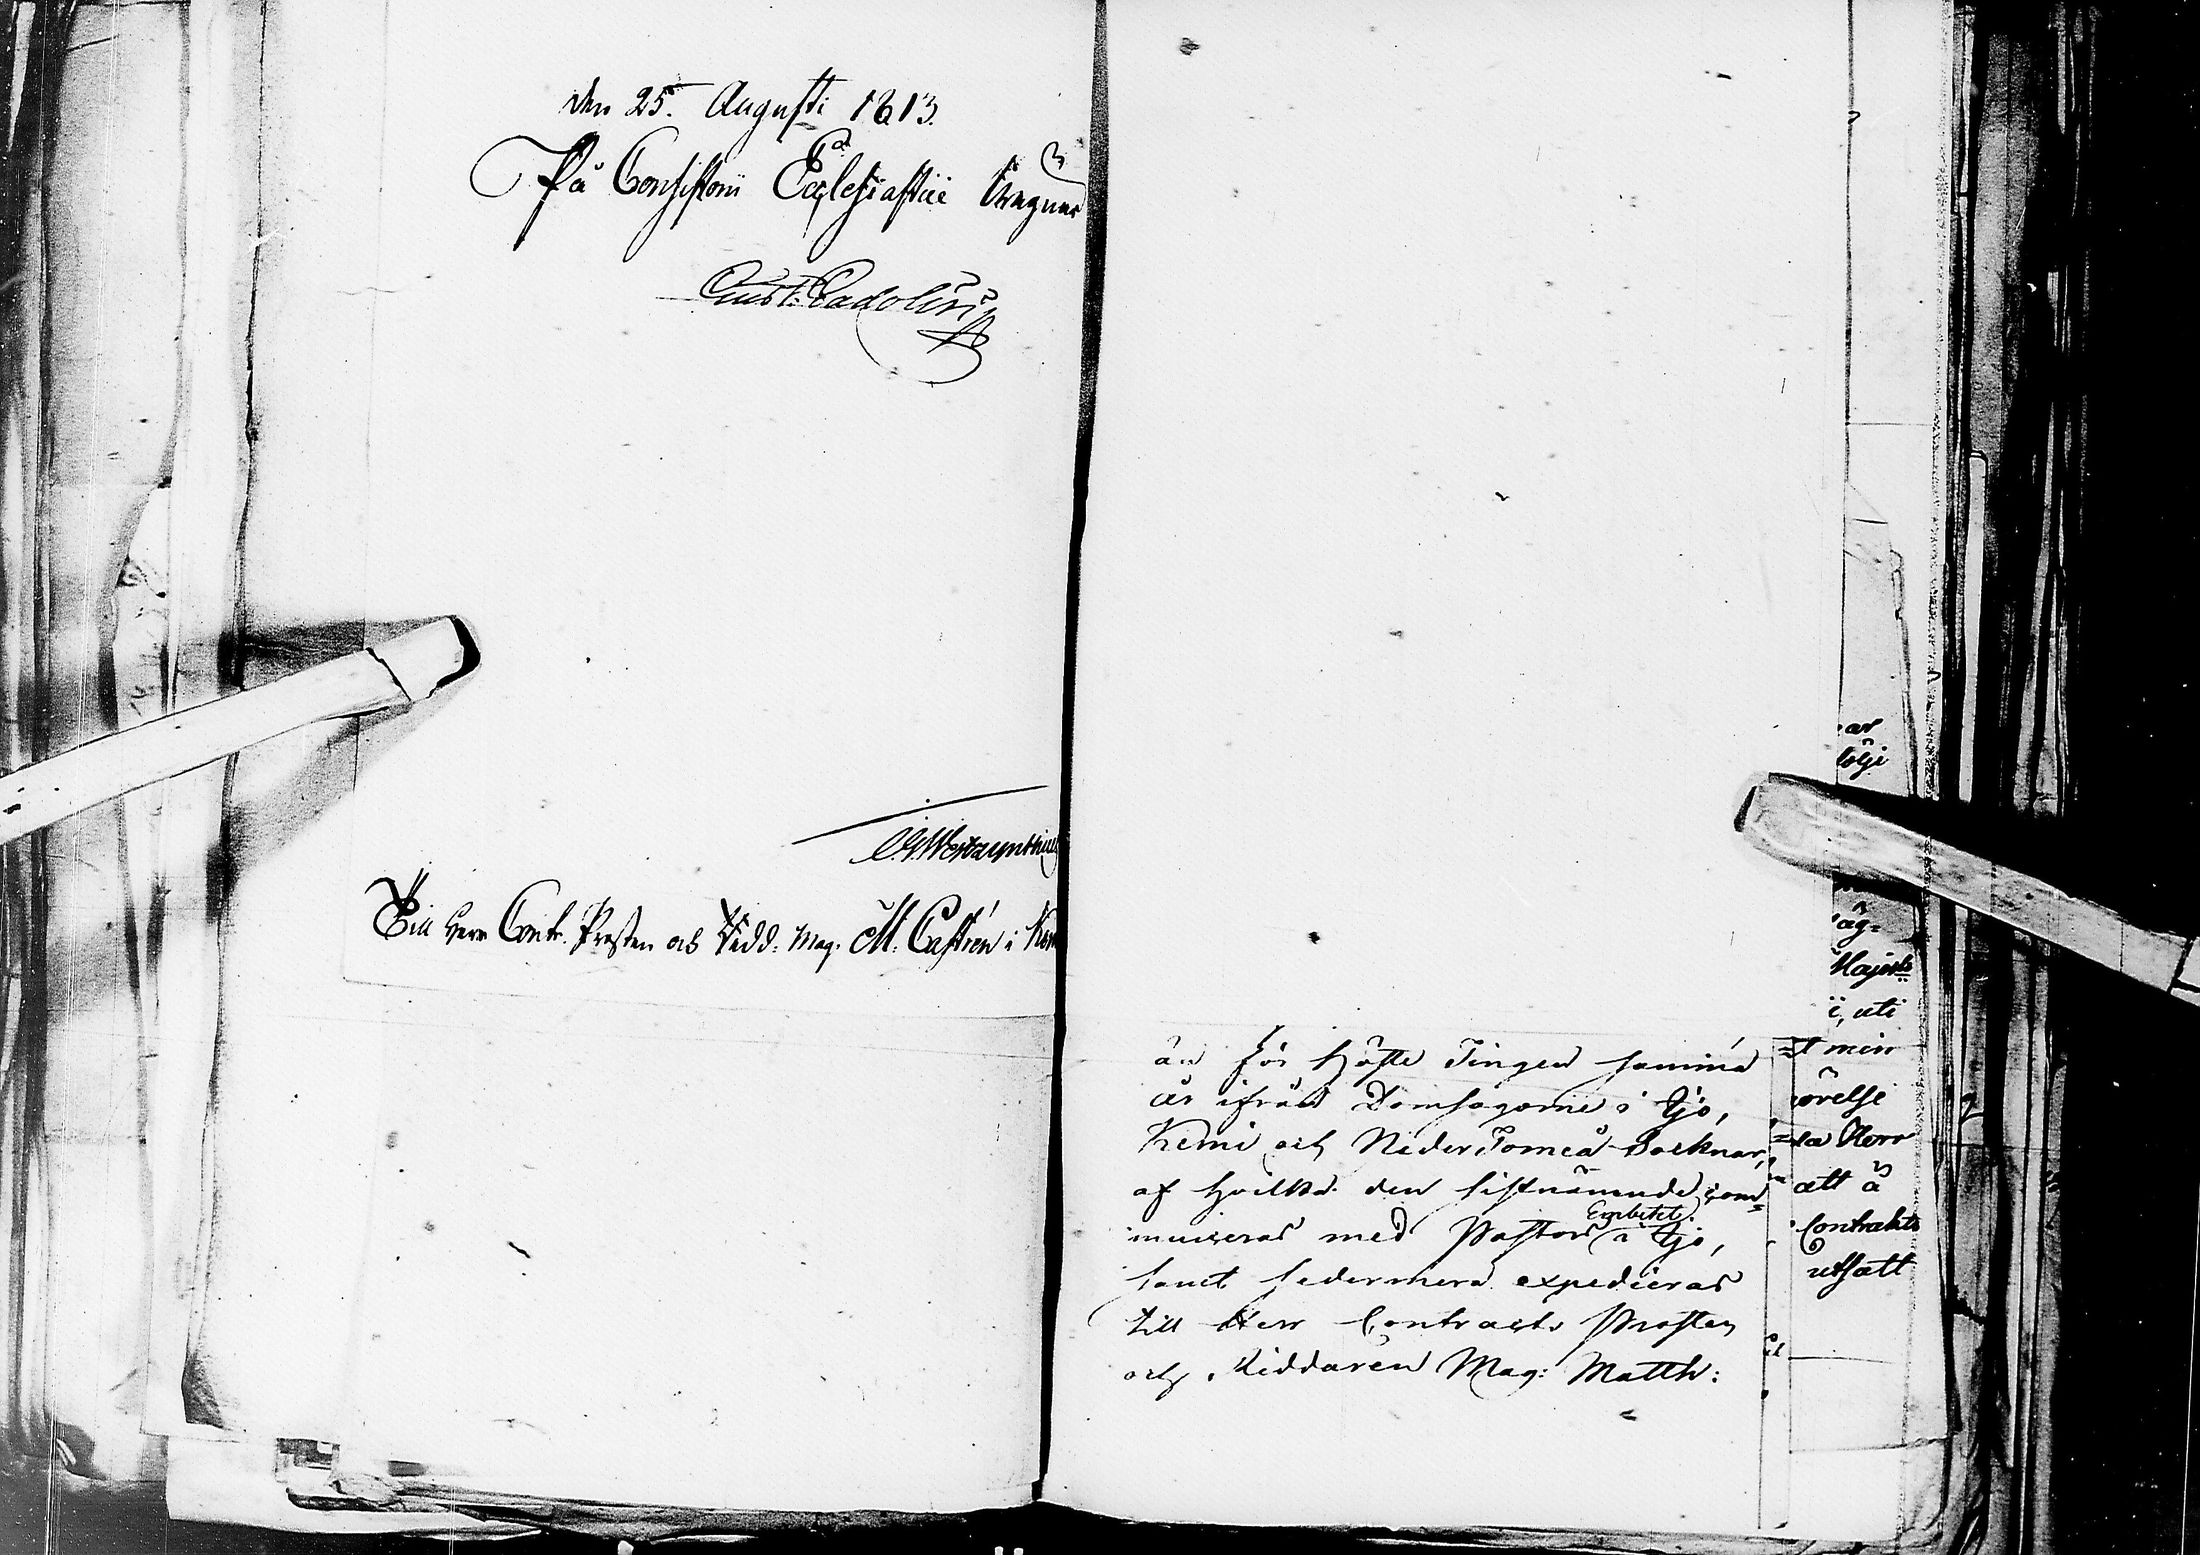 den 25. Augusti 1813.
På Consistorii Ecclesiastici wägnar
Gust: Gadolin
Till Herr Contr. Prosten och Ridd: Mag. M. Castrén i Kem
än för Höste Tingen samma
år ifrån Domsagorne i Ijo,
Kemi och NederTorneå Socknar,
af hvilka den sistnämnde com=
municeras med Pastors Embetet i Ijo,
samt sedermera expedieras
till Herr Contracts Prosten
och Riddaren Mag: Matth:
ar
följe
äg=
Majest:s
i, uti
t min
örelse
la Herr
att å
Contrakts
utsatt